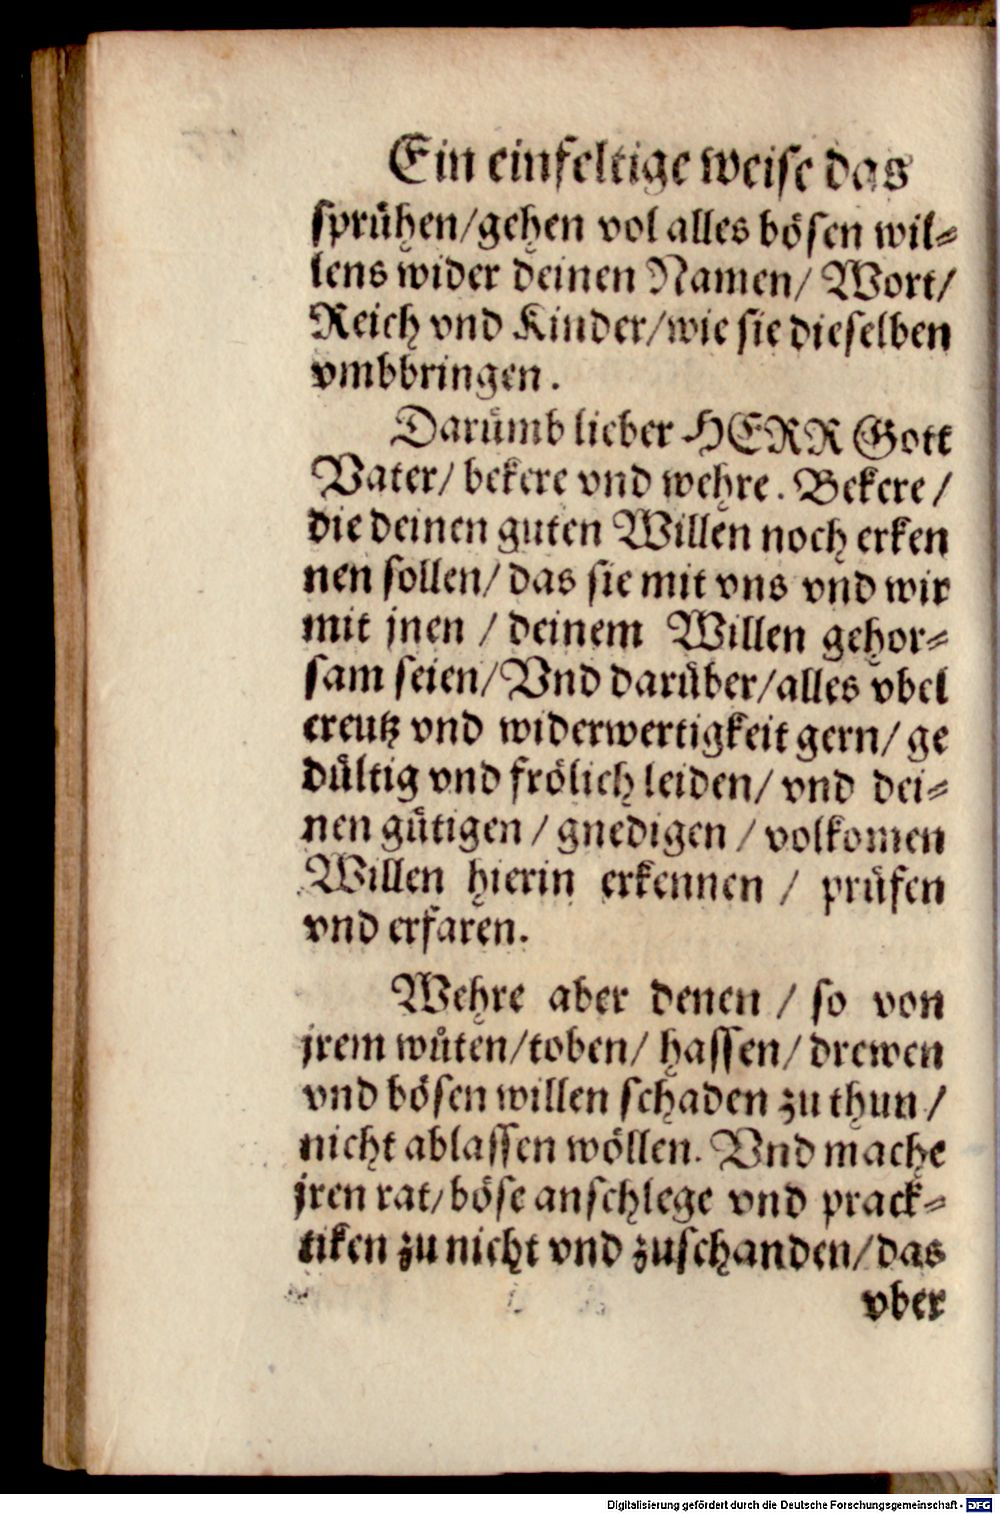 Ein einfeltige weise das
sprühen/gehen vol alles bösen wil⸗
lens wider deinen Namen/ Wort/
Reich vnd Kinder/wie sie dieselben
vmbbringen.
Darümb lieber HERR Gott
Vater/ bekere vnd wehre. Bekere/
die deinen guten Willen noch erken
nen sollen/ das sie mit vns vnd wir
mit jnen / deinem Willen gehor⸗
sam seien/ Vnd darüber/alles vbel
creutz vnd widerwertigkeit gern/ ge
dültig vnd frölich leiden/ vnd dei⸗
nen gütigen / gnedigen / volkomen
Willen hierin erkennen / prüfen
vnd erfaren.
Wehre aber denen / so von
jrem wüten/toben/ hassen/ drewen
vnd bösen willen schaden zu thun /
nicht ablassen wöllen. Vnd mache
jren rat/ böse anschlege vnd prack⸗
tiken zu nicht vnd zuschanden/das
vber
Digitalisierung gefördert durch die Deutsche Forschungsgemeinschaft - DFG